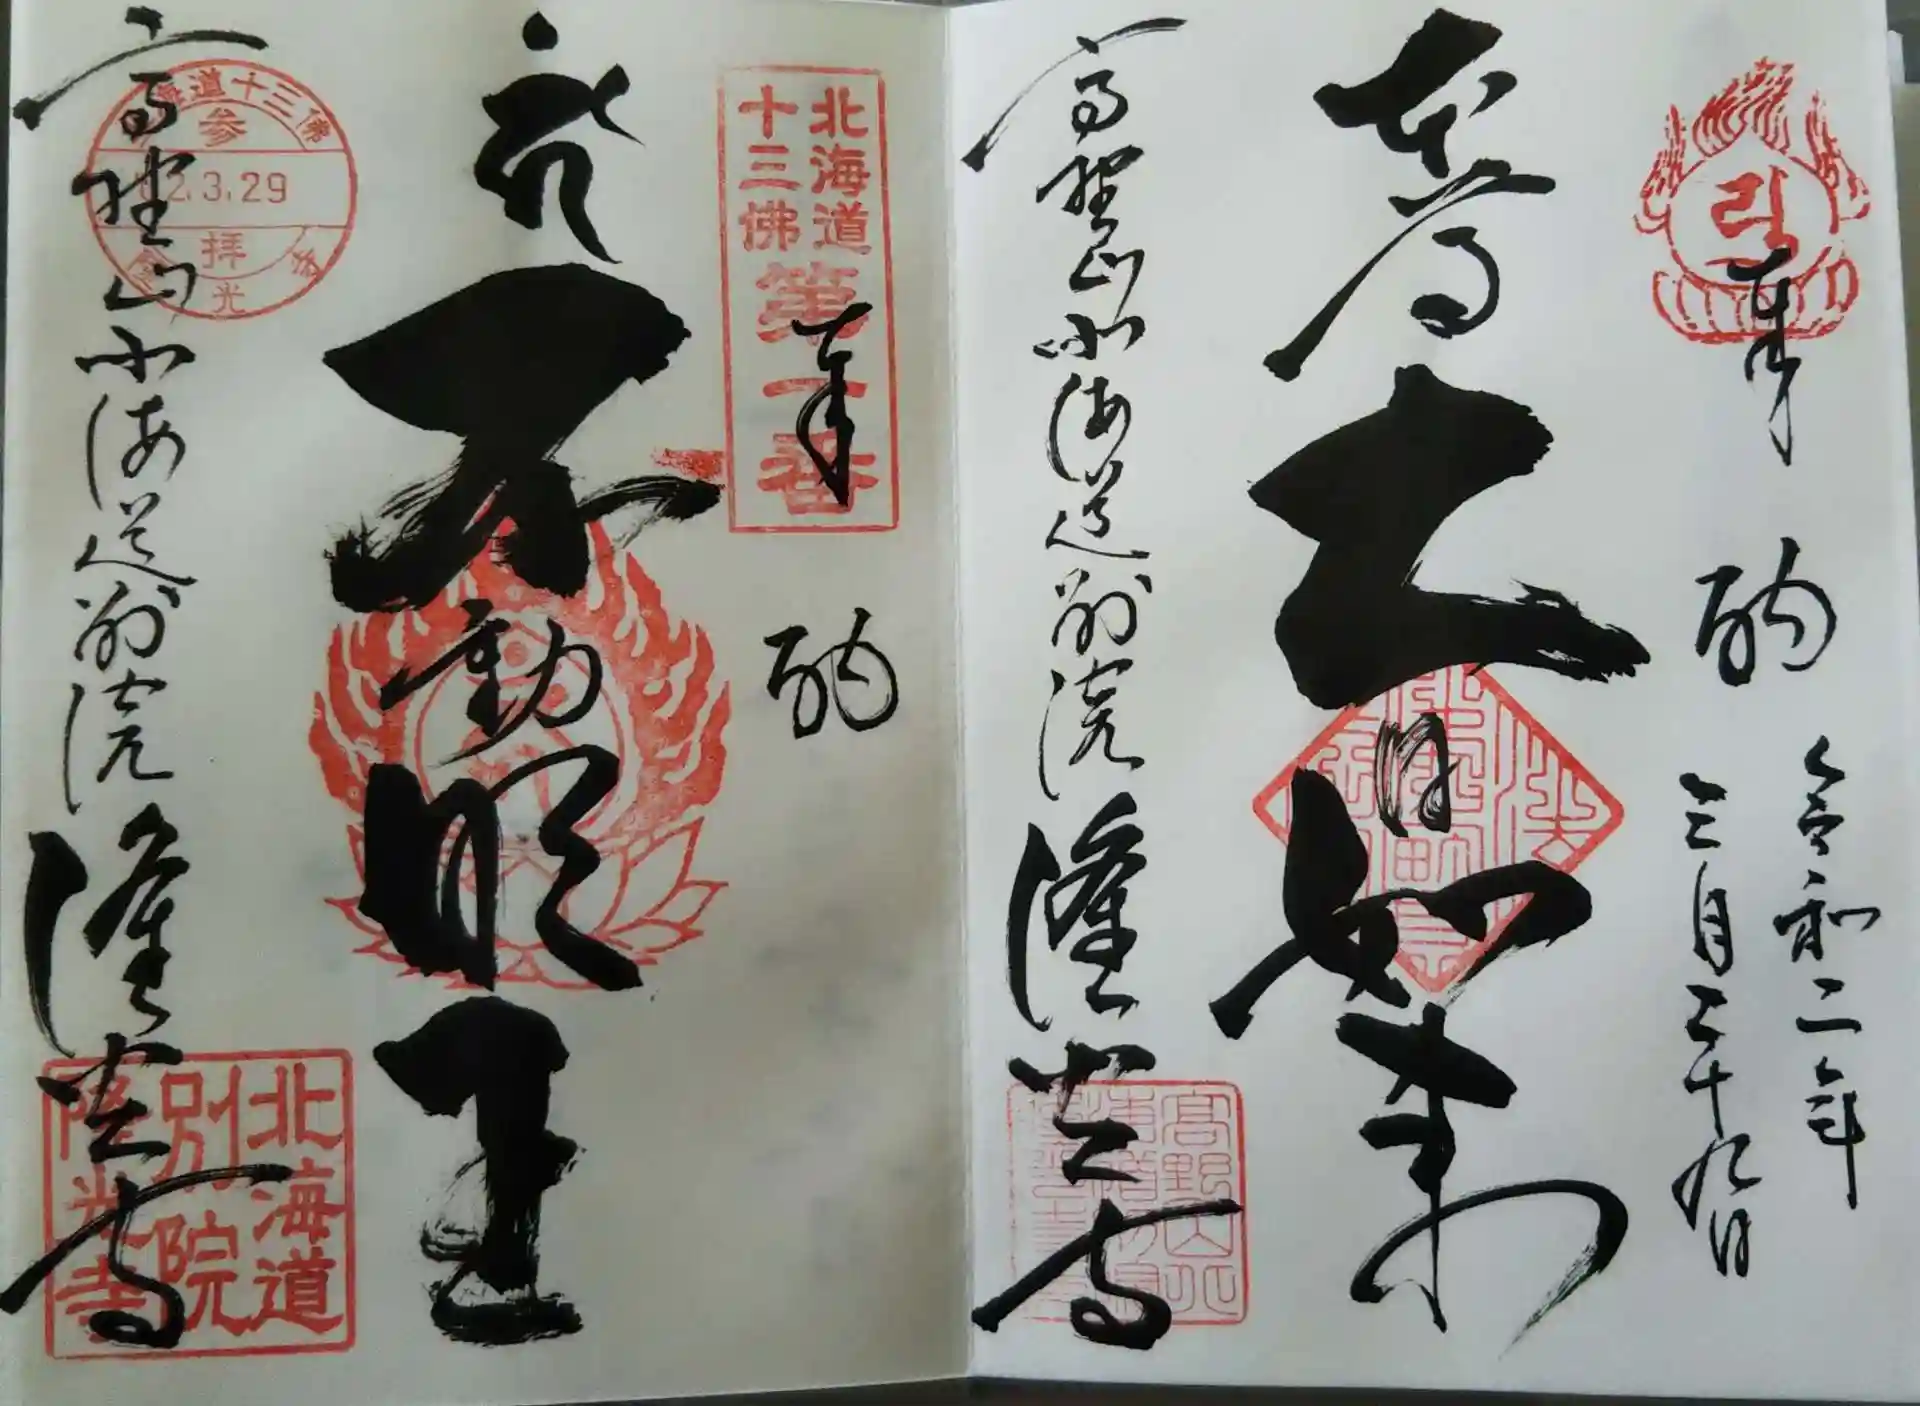 奉
納
令和二年
三月二十九日
本尊
大日如来
高野山北海道別院
隆光寺
北海道
十三佛
第一番
奉
納
不動明王
北海道十三佛
参
2.3.29
拝
光
高野山北海道別院
隆光寺
北海道
別院
隆光寺